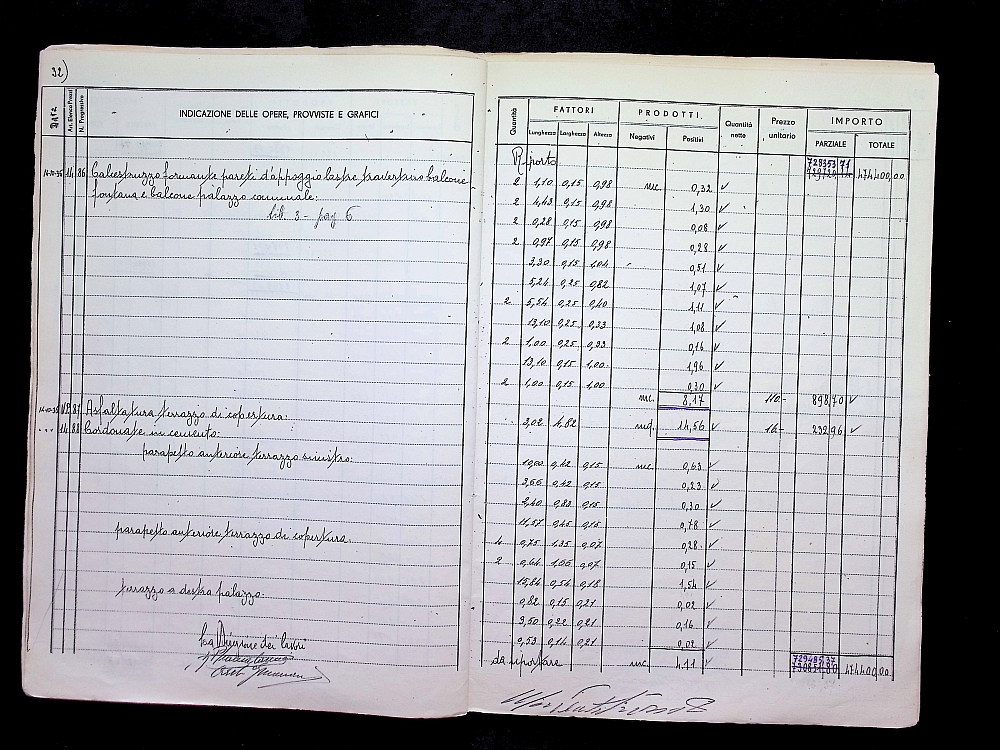 32)
DATA
Art. Elenco Prezzi
N. Progressivo
INDICAZIONE DELLE OPERE, PROVVISTE E GRAFICI
14-10-35 14 86 Calcestruzzo formante pareti d'appoggio lastre travertino balcone
fontana e balcone palazzo comunale:
lib. 3 - pag 6
87 Asfaltatura terrazzo di copertura:
14 88 Cordonate in cemento:
parapetto anteriore terrazzo sinistro:
parapetto anteriore terrazzo di copertura.
terrazzo a destra palazzo:
La Direzione dei lavori
Quantità
FATTORI
PRODOTTI
Quantità nette
Prezzo unitario
IMPORTO
Lunghezza Larghezza Altezza
Negativi Positivi
PARZIALE TOTALE
Riporto 729353 71 474400,00
2 1,10 0,15 0,98 mc. 0,32
2 4,43 0,15 0,98 1,30
2 0,28 0,15 0,98 0,08
2 0,97 0,15 0,98 0,28
3,30 0,15 1,04 0,51
5,24 0,25 0,82 1,07
2 5,54 0,25 0,40 1,11
13,10 0,25 0,33 1,08
2 1,00 0,25 0,33 0,16
13,10 0,15 1,00 1,96
2 1,00 0,15 1,00 0,30
mc. 8,17 110.- 898,70
3,02 4,82 mq. 14,56 16.- 232,96
10,00 0,42 0,15 mc 0,63
3,66 0,42 0,15 0,23
2,40 0,83 0,15 0,30
11,57 0,45 0,15 0,78
4 0,75 1,35 0,07 0,28
2 0,64 1,06 0,07 0,15
15,84 0,54 0,18 1,54
0,82 0,15 0,21 0,02
3,50 0,22 0,21 0,16
0,53 0,14 0,21 0,02
da riportare mc. 4,11 474400,00